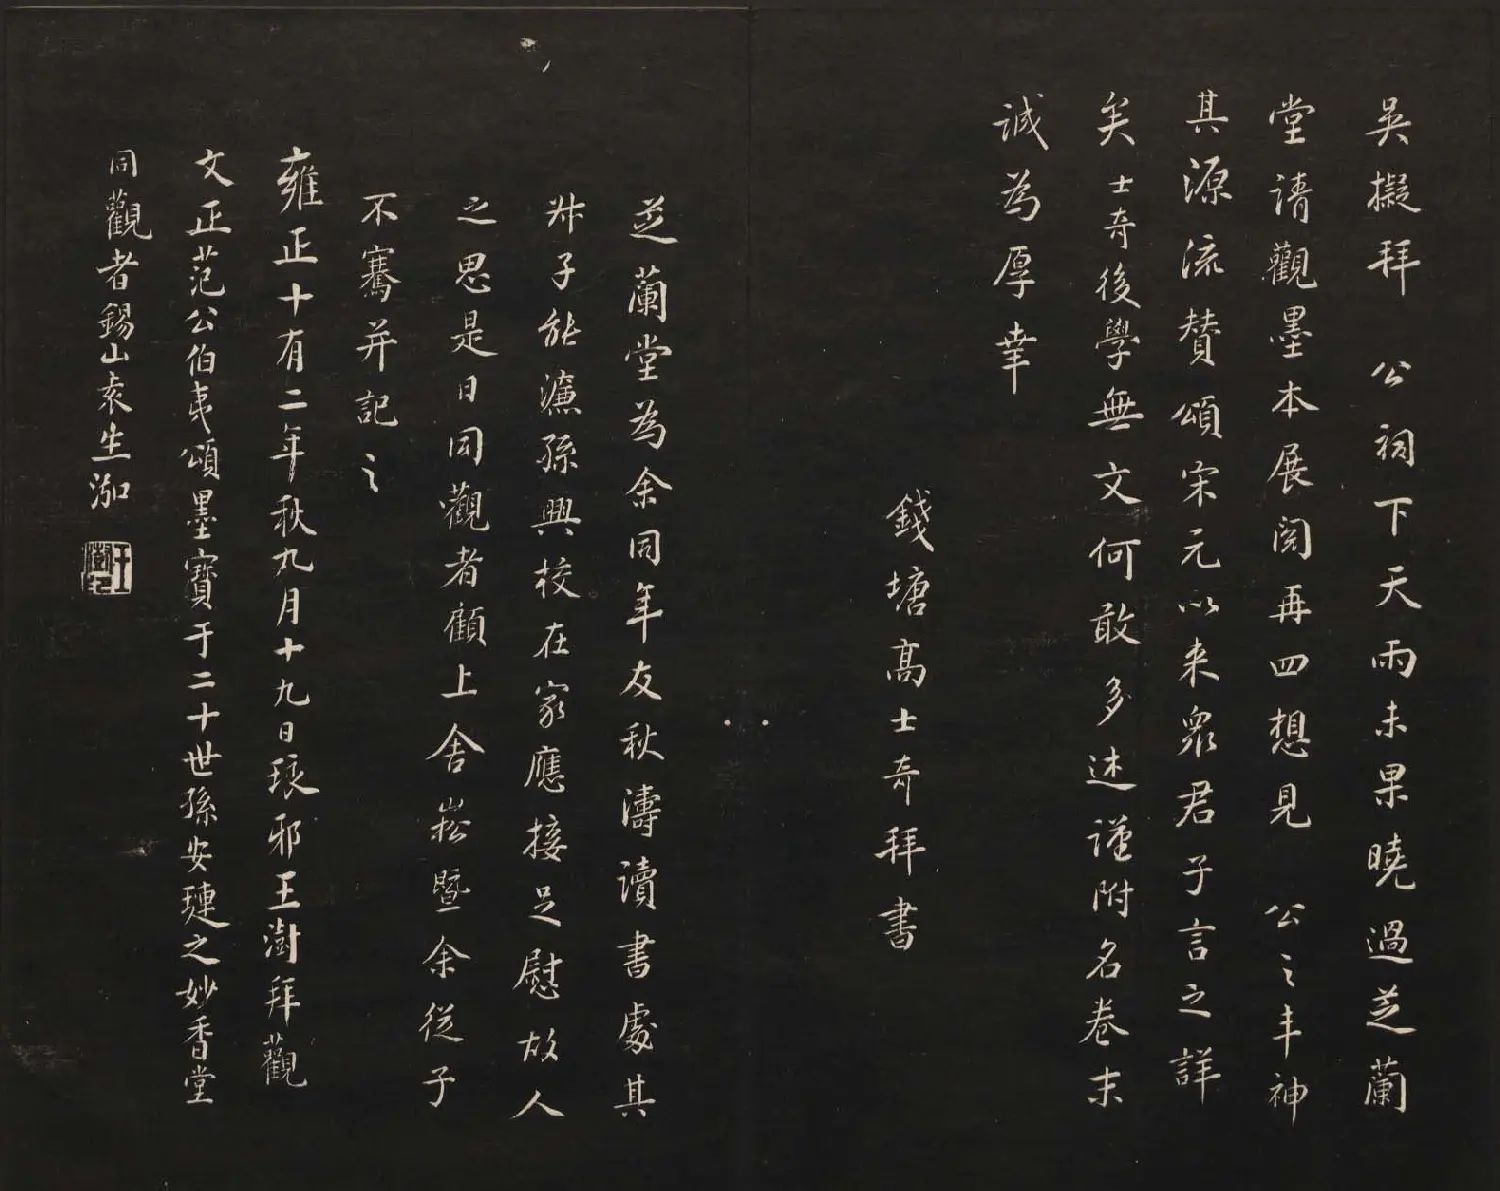 吳擬拜 公祠下天雨未果曉過芝蘭
堂請觀墨本展閱再四想見 公之丰神
其源流贊頌宋元以来衆君子言之詳
矣士奇後學無文何敢多述謹附名卷末
誠為厚幸
錢塘高士奇拜書
芝蘭堂為余同年友秋濤讀書處其
叔子能濂孫興校在家應接足慰故人
之思是日同觀者顧上舍崧暨余從子
不騫并記之
雍正十有二年秋九月十九日琅邪王澍拜觀
文正范公伯夷頌墨寶于二十世孫安璉之妙香堂
同觀者錫山秦生泇